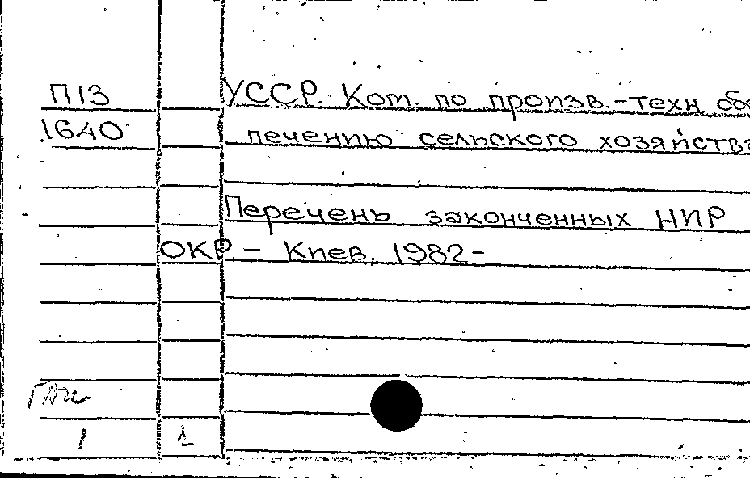 П13
1640
УССР. Ком. по произв.-техн обе
печению сельского хозяйства
Перечень законченных НИР
ОКР – Киев, 1982-
1 2